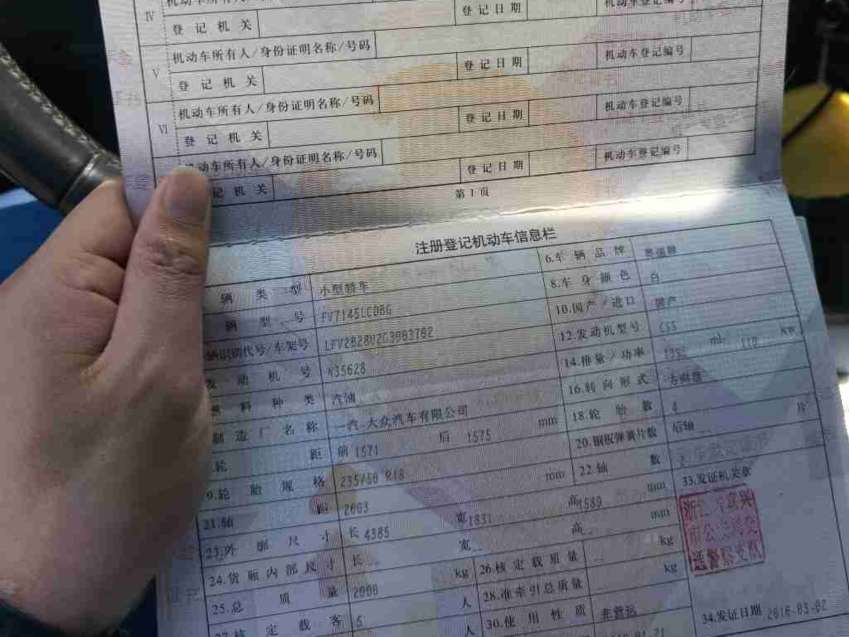 IV 机动车所有人/身份证明名称/号码
登记机关 登记日期 机动车登记编号
V 机动车所有人/身份证明名称/号码
登记机关 登记日期 机动车登记编号
VI 机动车所有人/身份证明名称/号码
登记机关 登记日期 机动车登记编号
机动车所有人/身份证明名称/号码
记机关 登记日期 机动车登记编号
第1页
注册登记机动车信息栏
辆类型 小型轿车 6.车辆品牌
辆型号 8.车身颜色 白
辆识别代号/车架号 10.国产/进口 国产
发动机号 N35628 12.发动机型号
燃料种类 汽油 14.排量/功率 ml kw
制造厂名称 一汽-大众汽车有限公司 16.转向形式 方向盘
轮距 前 1571 后 1575 mm 18.轮胎数 4
9.轮胎规格 235/50 R18 20.钢板弹簧片数 后轴 片
21.轴距 2603 mm 22.轴数
23.外廓尺寸 长 4385 宽 1831 高 1589 mm 33.发证机关章
24.货厢内部尺寸 长 宽 高 mm
25.总质量 2000 kg 26.核定载质量 kg
27.核定载客 5 人 28.准牵引总质量 kg
人 30.使用性质 非营运 34.发证日期